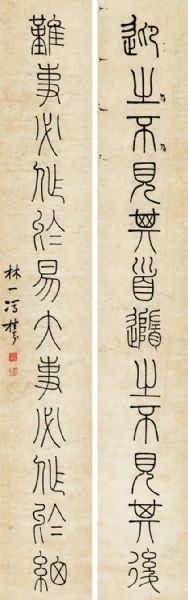 迎之不見其首隨之不見其後
難事必作於易大事必作於細
林一馮桂芬